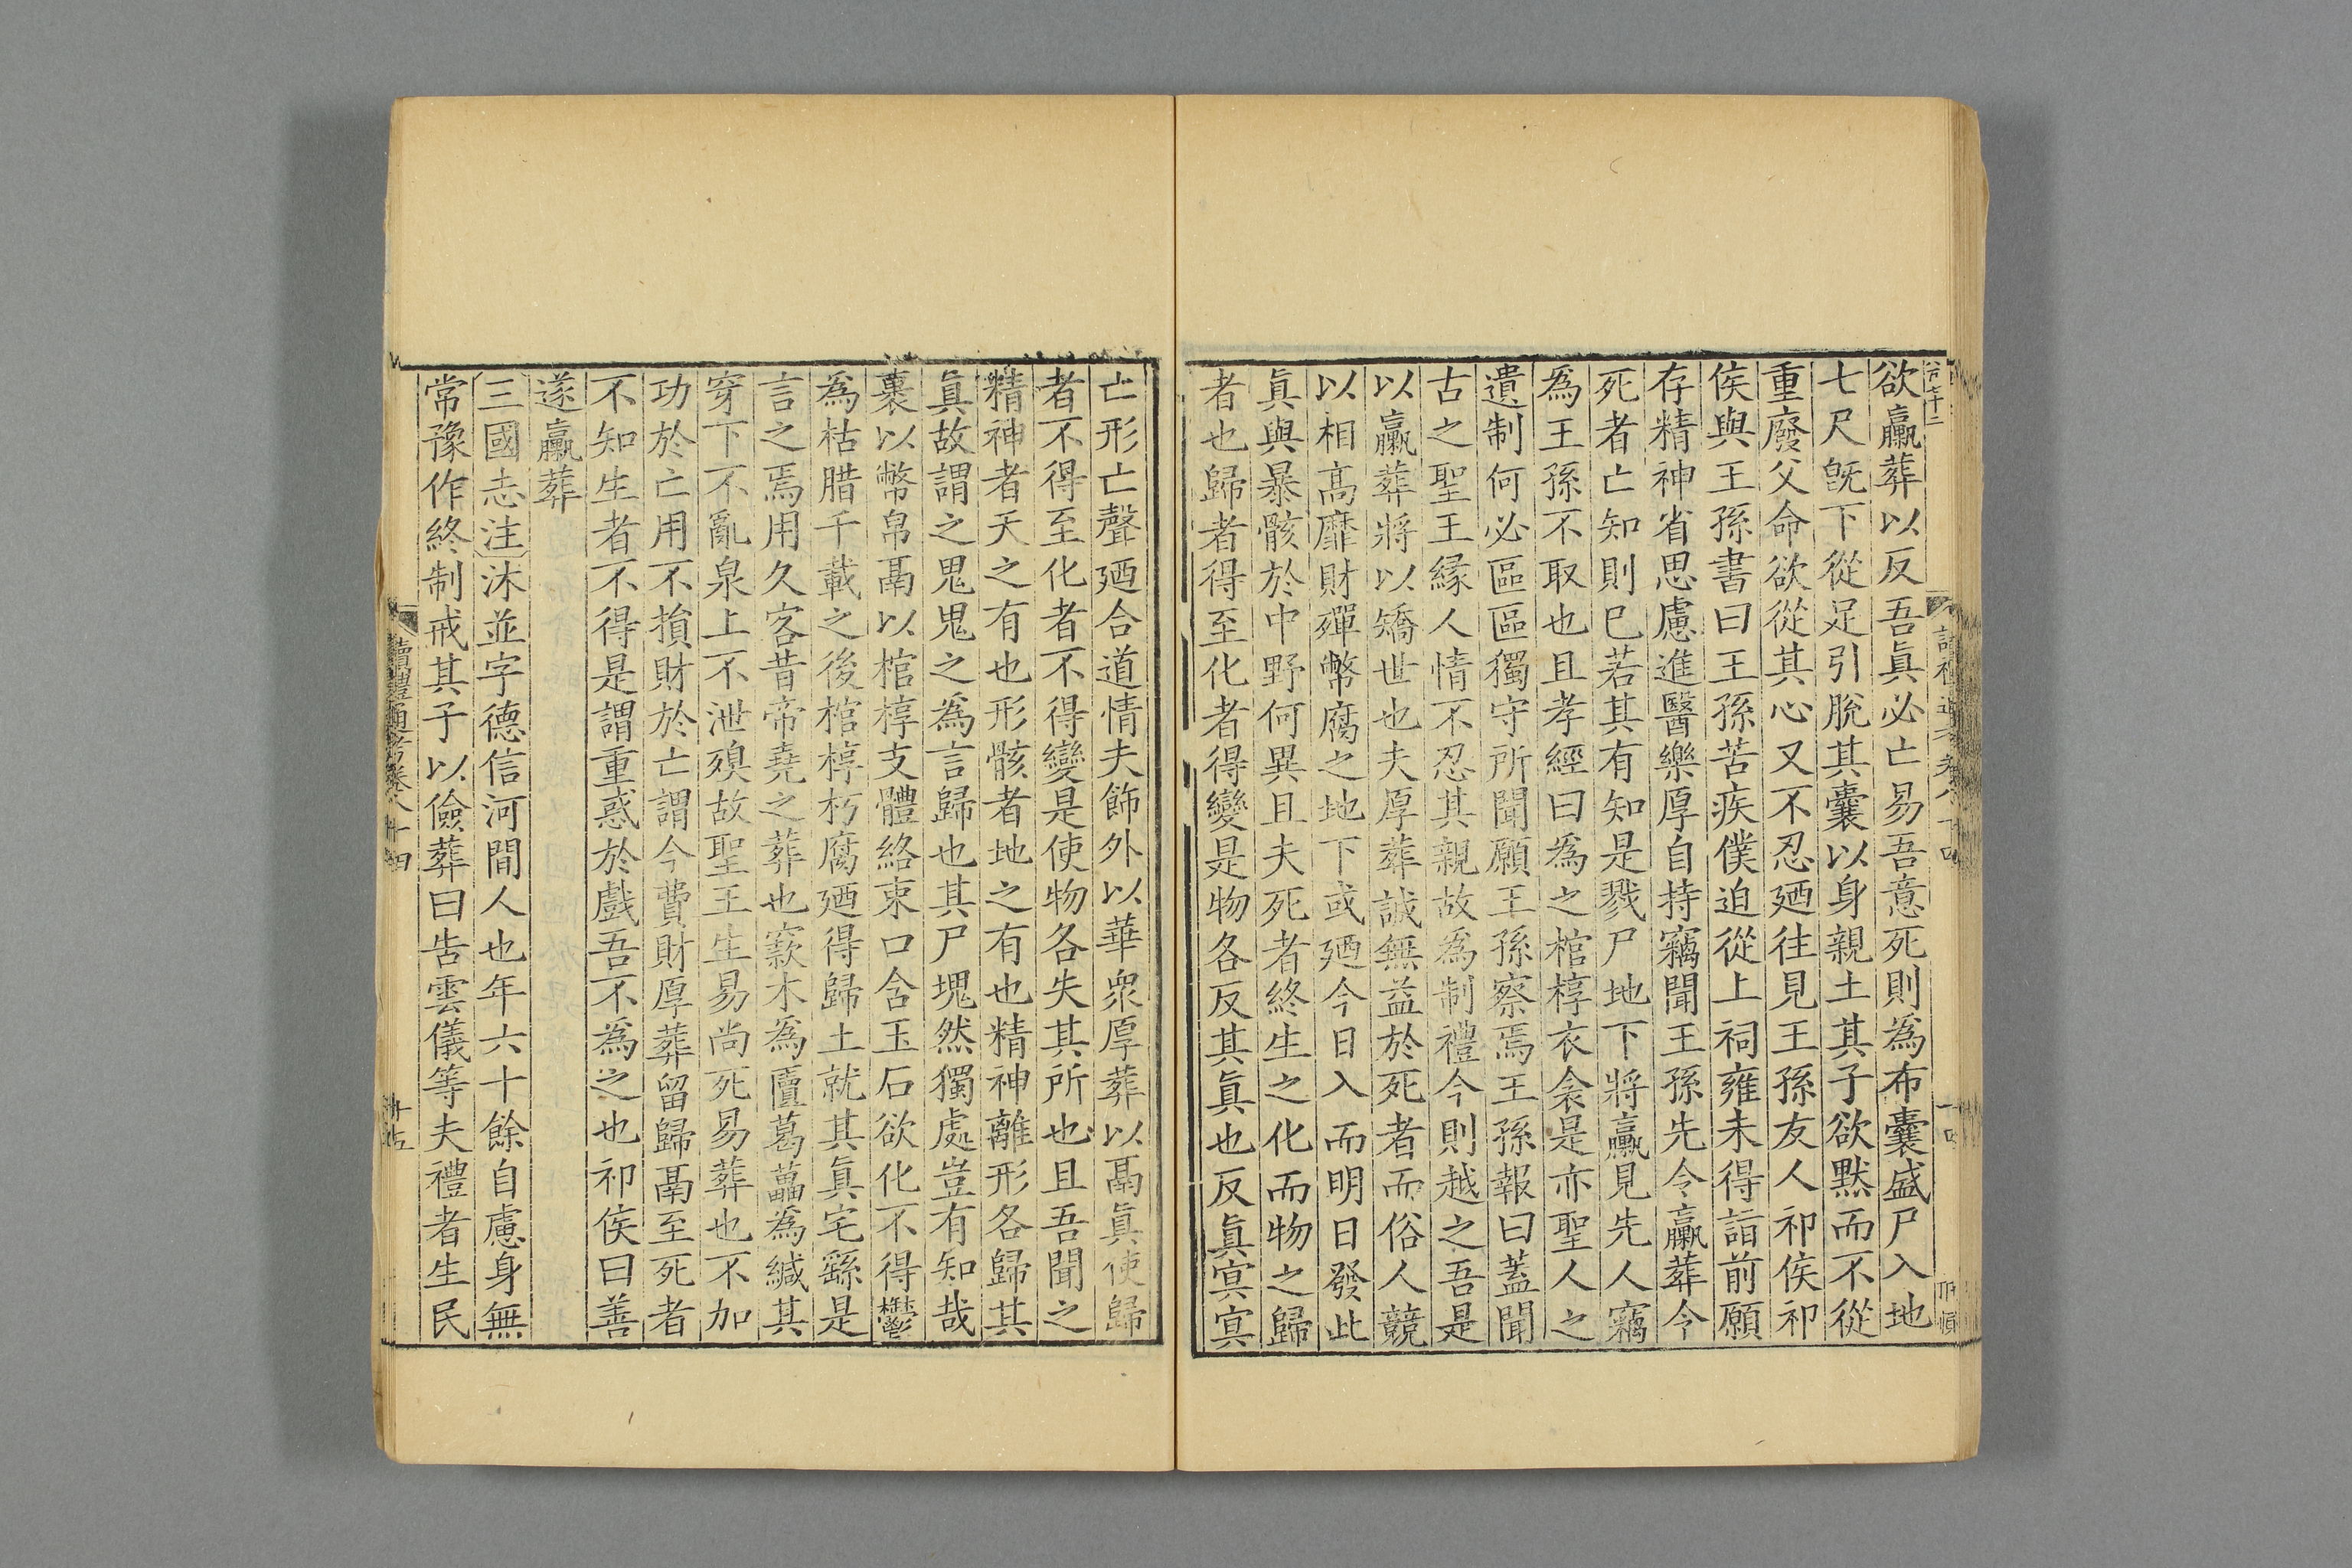 欲臝葬以反吾眞必亡易吾意死則爲布囊盛尸入地
七尺旣下從足引脫其囊以身親土其子欲默而不從
重廢父命欲從其心又不忍廼往見王孫友人祁侯祁
侯與王孫書曰王孫苦疾僕迫從上祠雍未得詣前願
存精神省思慮進醫樂厚自持竊聞王孫先令臝葬令
死者亡知則已若其有知是戮尸地下將臝見先人竊
爲王孫不取也且孝經曰爲之棺椁衣衾是亦聖人之
遺制何必區區獨守所聞願王孫察焉王孫報曰蓋聞
古之聖王緣人情不忍其親故爲制禮今則越之吾是
以臝葬將以矯世也夫厚葬誠無益於死者而俗人競
以相高靡財殫幣腐之地下或廼今日入而明日發此
眞與暴骸於中野何異且夫死者終生之化而物之歸
者也歸者得至化者得變是物各反其眞也反眞冥冥
亡形亡聲廼合道情夫飾外以華衆厚葬以鬲眞使歸
者不得至化者不得變是使物各失其所也且吾聞之
精神者天之有也形骸者地之有也精神離形各歸其
眞故謂之鬼鬼之爲言歸也其尸塊然獨處豈有知哉
裹以幣帛鬲以棺椁支體絡束口含玉石欲化不得鬱
爲枯腊千載之後棺椁朽腐廼得歸土就其眞宅繇是
言之焉用久客昔帝堯之葬也窾木爲匵葛藟爲緘其
穿下不亂泉上不泄殠故聖王生易尚死易葬也不加
功於亡用不損財於亡謂今費財厚葬留歸鬲至死者
不知生者不得是謂重惑於戲吾不爲之也祁侯曰善
遂臝葬
三國志注沐並字德信河間人也年六十餘自慮身無
常豫作終制戒其子以儉葬曰告雲儀等夫禮者生民
讀禮通考卷八十四
十五